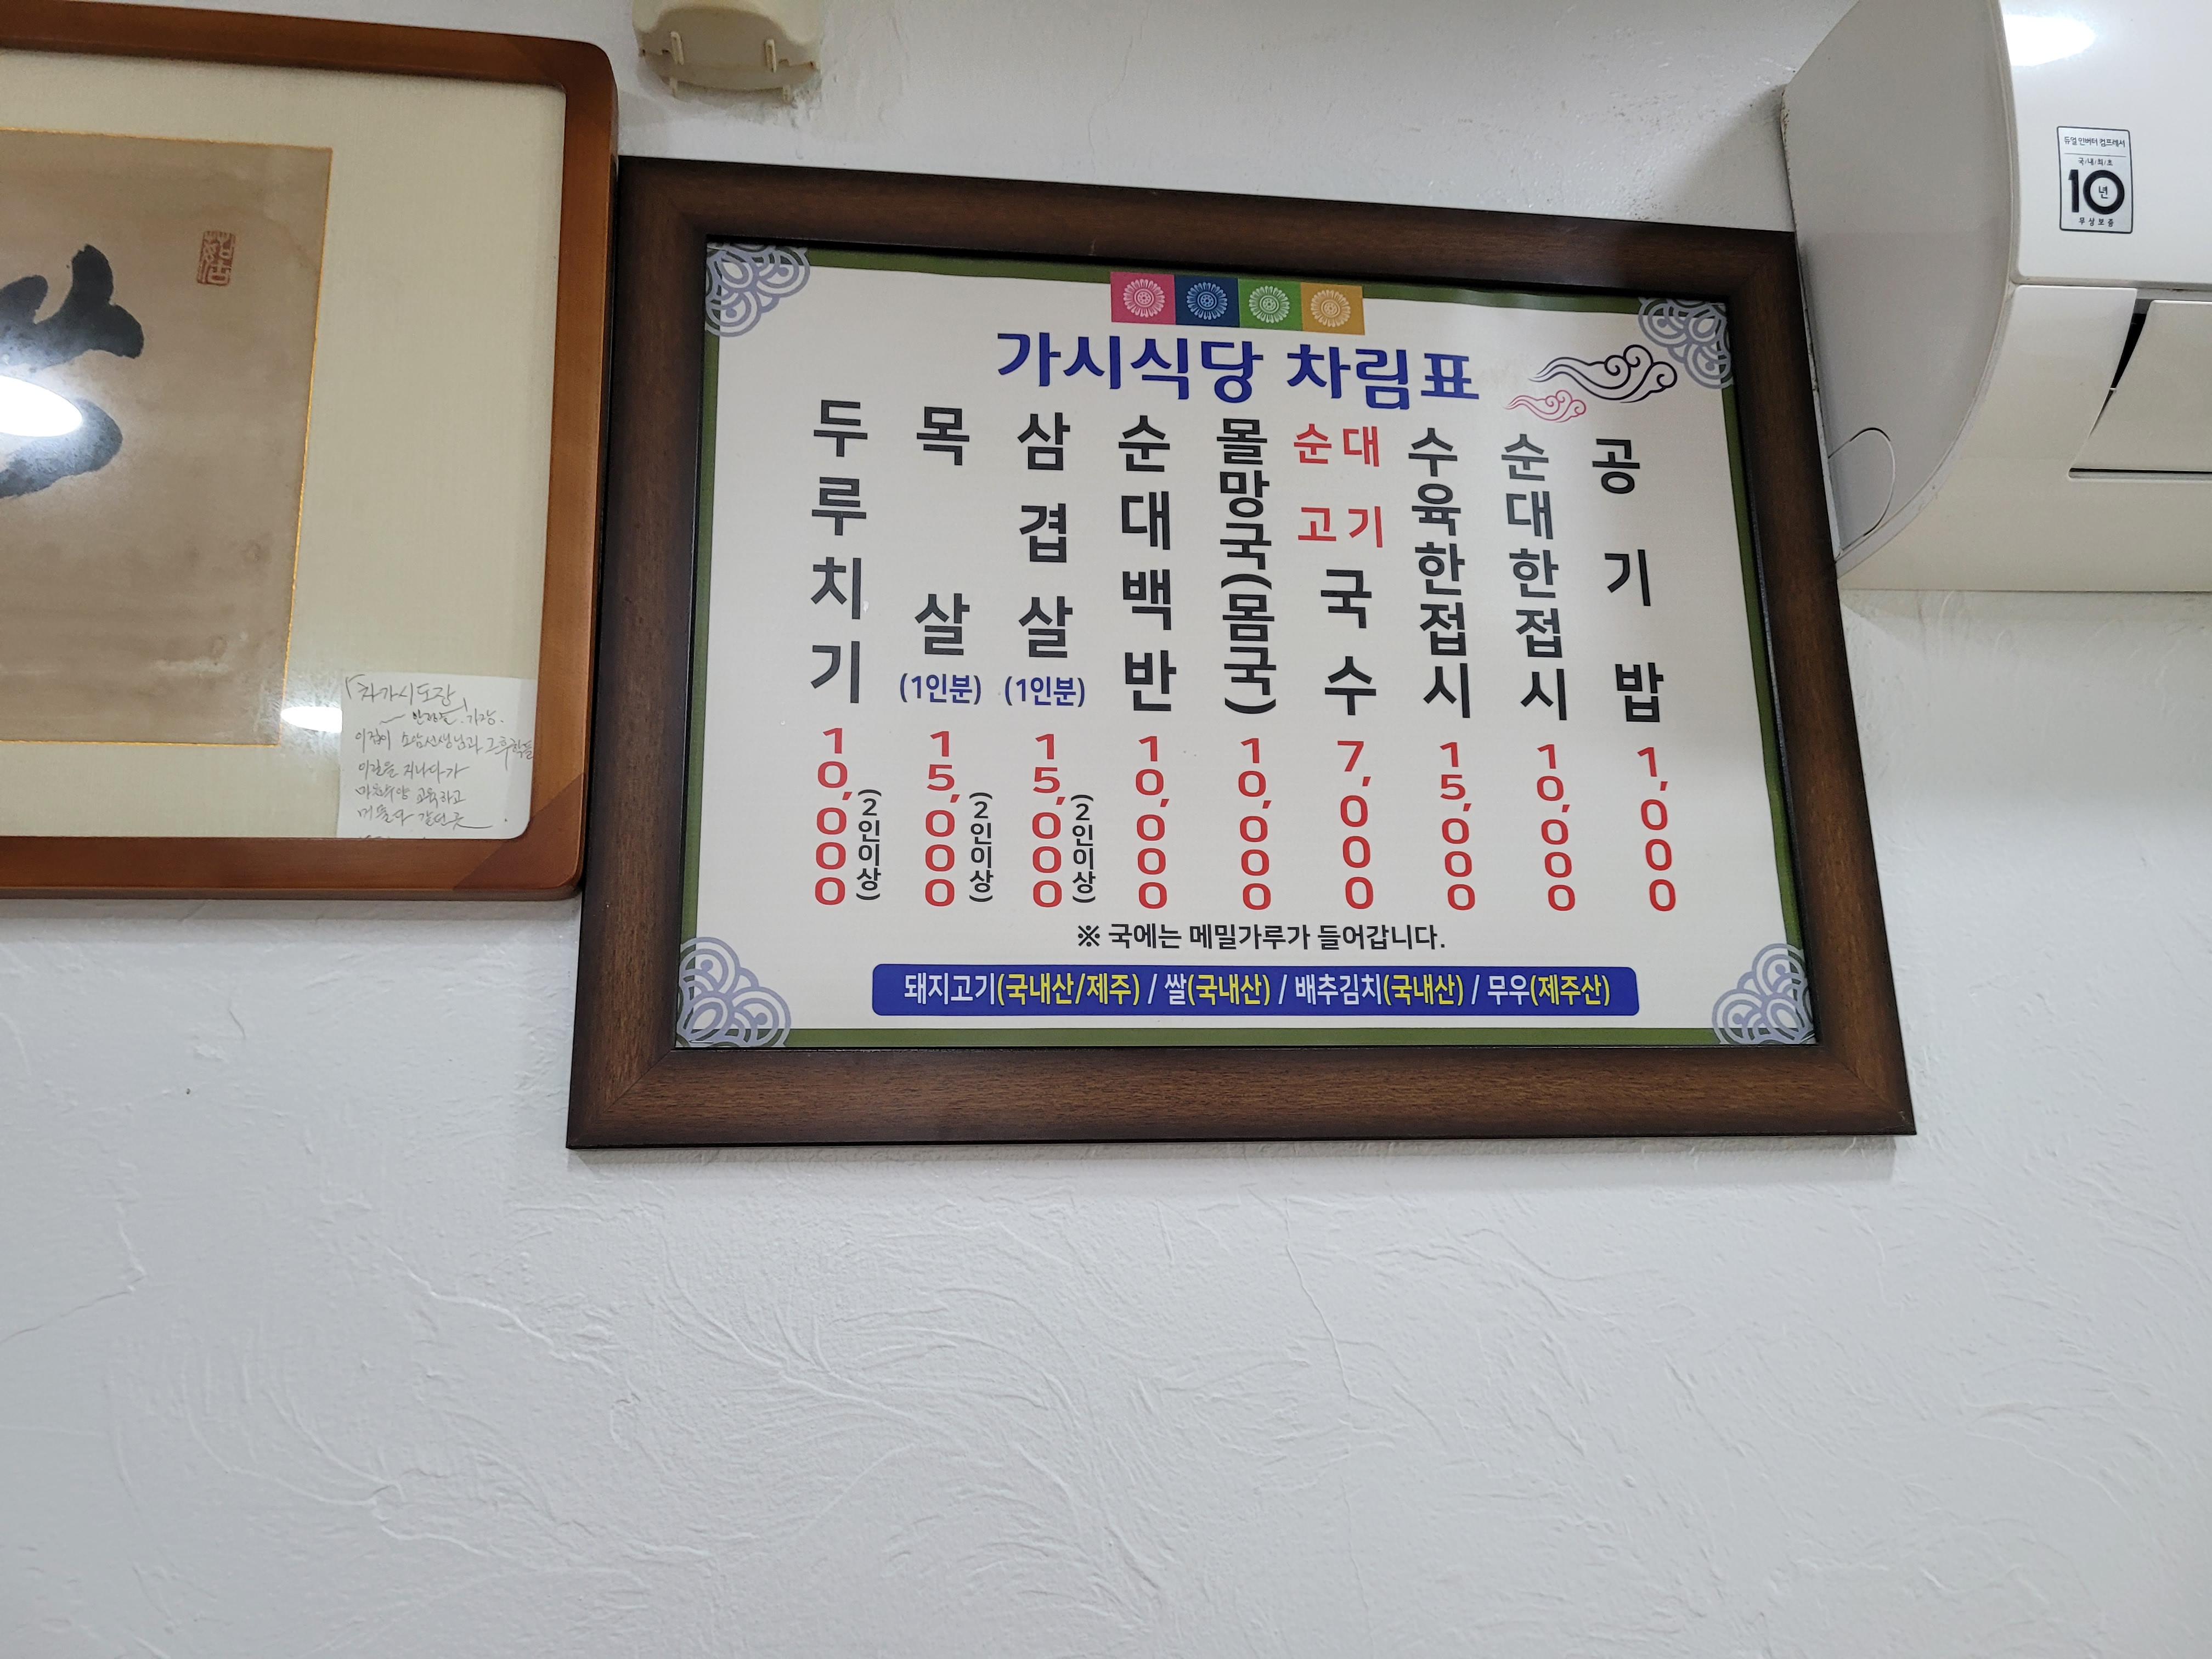 가시식당 차림표
두루치기 10,000 (2인이상)
목살 (1인분) 15,000 (2인이상)
삼겹살 (1인분) 15,000 (2인이상)
순대백반 10,000
몰망국(몸국) 10,000
순대 고기 국수 7,000
수육한접시 15,000
순대한접시 10,000
공기밥 1,000
※ 국에는 메밀가루가 들어갑니다.
돼지고기(국내산/제주) / 쌀(국내산) / 배추김치(국내산) / 무우(제주산)
듀얼 인버터 컴프레서
국/내/최/초
10년
무상보증
이집이 소암선생님과
이길을 지나다가